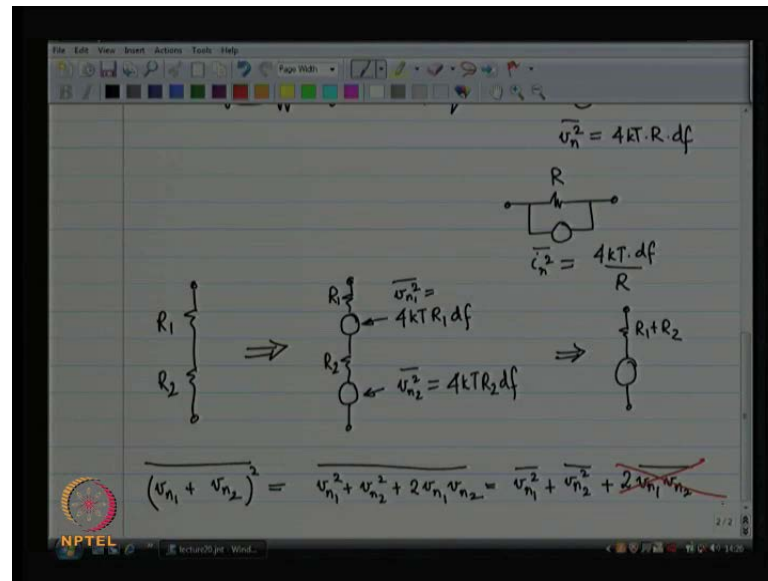 File Edit View Insert Actions Tools Help
Page Width
B I
v̅ₙ² = 4kT·R·df
R
i̅ₙ² = 4kT·df / R
R₁
R₂
⇒
R₁
v̅ₙ₁² =
4kTR₁df
R₂
v̅ₙ₂² = 4kTR₂df
⇒
R₁+R₂
(vₙ₁ + vₙ₂)² = vₙ₁² + vₙ₂² + 2vₙ₁vₙ₂ = vₙ₁² + vₙ₂² + 2vₙ₁vₙ₂
2/2
NPTEL
lecture20.jnt - Wind...
14:26